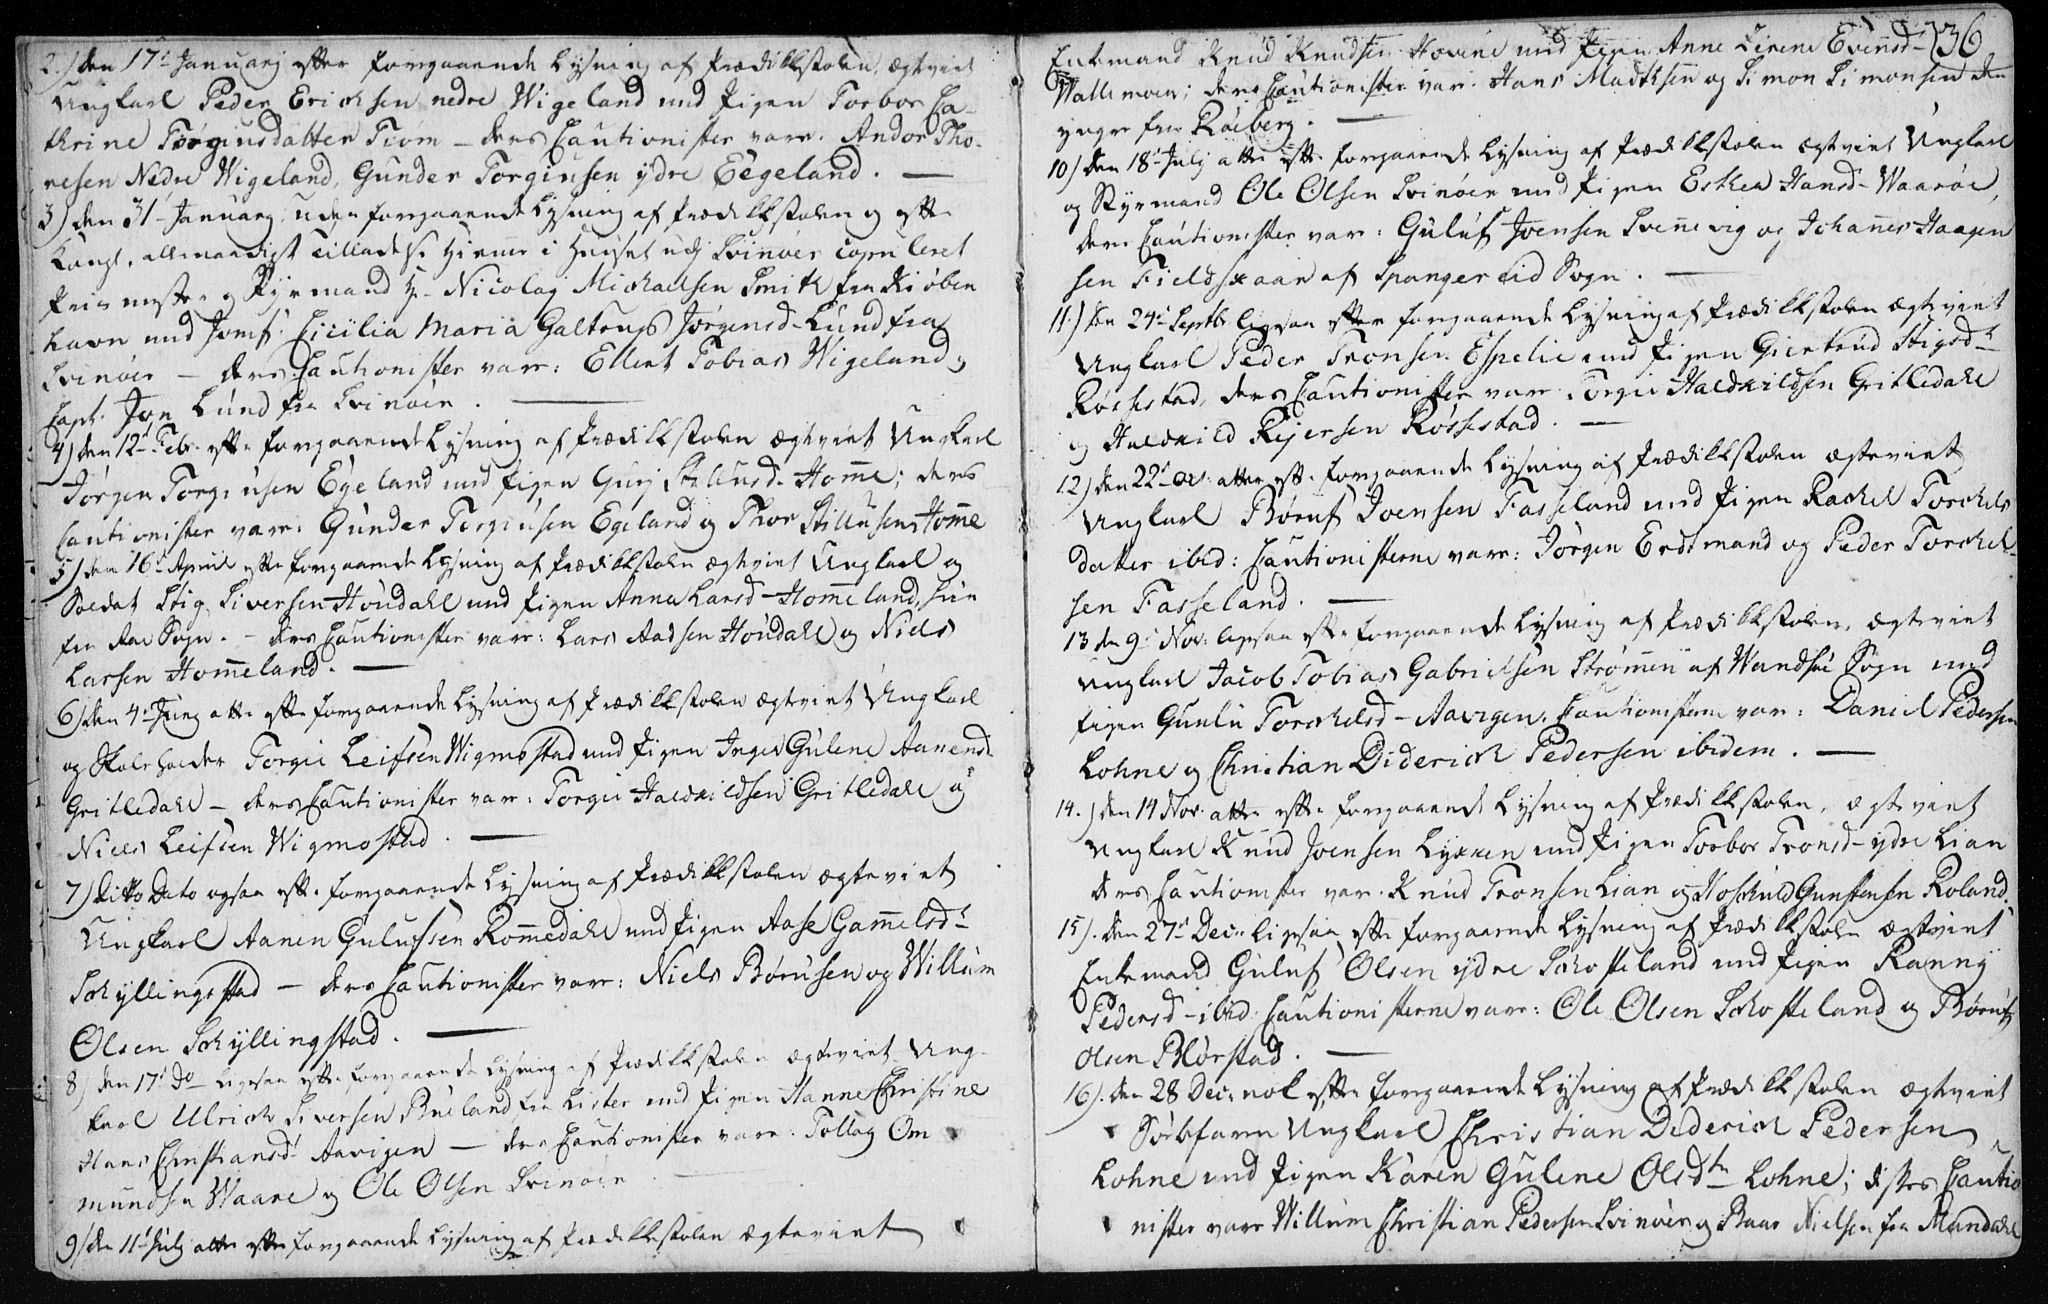 2.) den 17de Januarj efter foregaaende Lysning af Prædikestolen, ægteviet
Ungkarl Peder Erichsen nedre Wigeland med Pigen Torbor Ca-
thrine Torgiusdatter Tiom – deres Cautionister vare. Andor Tho-
resen Nedre Wigeland, Gunder Torgiusen ydre Eegeland. —
3) den 31 Januarj, uden forgaaende Lysning af Prædikestolen og efter
Kongl. allernaadigst Tilladelse hiemme i Huuset udj Svinøer copuleret
og Styrmand Hr. Nicolay Michaelsen Smith fra Kiøben
havn med Jomf. Cicilia Maria Galtrup Jørgensd. Lund fra
Svinøer – deres Cautionister vare: Ellert Tobias Wigeland,
Capt. Jon Lund fra Svinøen. —
4) den 12te Febr. efter forgaaende Lysning af Prædikestolen ægteviet Ungkarl
Jørgen Torgiusen Egeland med Pigen Gurj Stillusd. Homme; deres
Cautionister vare: Gunder Torgiusen Egeland og Thor Stillusen Homme
5) den 16de April efter forgaaende Lysning af Prædikestolen ægteviet Ungkarl og
Soldat Stig Siversen Houdahl med Pigen Anna Larsd. Homeland, hun
fra Aae Sogn. – deres Cautionister vare: Lars Aadsen Houdahl og Niels
Larsen Homeland. —
6) den 4de Junj atter efter forgaaende Lysning af Prædikestolen ægteviet Ungkarl
og Skoleholder Torgie Leifsen Wigmostad med Pigen Inger Gulene Aanensd.
Gritledahl – deres Cautionister var: Torgie Haldvildsen Gritledahl og
Niels Leifsen Wigmostad. —
7) Ditto Dato ogsaa efter forgaaende Lysning af Prædikestolen ægteviet
Ungkarl Aanen Gulufsen Romedahl med Pigen Aase Gamelsdr
Schyllingstad – deres Cautionister vare: Niels Børusen og Willum
Olsen Schyllingstad. —
8) den 17de Do ligesaa efter forgaaende Lysning af Prædikestolen ægteviet Ung-
karl Ulrich Siversen Brueland fra Lister med Pigen Hanne Christine
Hans Christiansdr Aavigen – deres Cautionister vare: Tollag Om
mundsen Waare og Ole Olsen Svinøen
9) den 11te Julj atter efter forgaaende Lysning af Prædikestolen ægteviet
36
Enkemand Knud Knudsen Hovene med Pigen Anne Sirene Evensd.
Wallemoen; deres Cautionister var. Hans Madthsen og Simon Simonsen den
yngre fra Roeberg. —
10) den 18de Julj atter efter forgaaende Lysning af Prædikestolen ægteviet Ungkarl
og Styrmand Ole Olsen Svinøen med Pigen Esther Hansd. Waarøe
deres Cautionister var: Guluf Joensen Svinevig og Johanes Haagen
sen Fieldskaar af Spangereid Sogn. —
11.) den 24de Septbr ligesaa efter forgaaende Lysning af Prædikestolen ægteviet
Ungkarl Peder Tronsen Espelie med Pigen Giertrud Stigsdr
Røssestad, deres Cautionister vare. Torgie Haldvildsen Gritledahl
og Haldvild Rejersen Røssestad. —
12) den 22de atter efter forgaaende Lysning af Prædikestolen ægteviet
Ungkarl Børuf Joensen Fasseland med Pigen Rachel Torchels
datter ibid: Cautionisterne vare: Jørgen Erdtmand og Peder Torchel-
sen Fasseland. —
13 den 9de Nov: ligesaa efter forgaaende Lysning af Prædikestolen, ægteviet
Ungkarl Jacob Tobias Gabrielsen Strømmen af Wandsøe Sogn med
Pigen Gunlu Torchelsd. Aavigen. Cautionisterne var: Daniel Pedersen
Lohne og Christian Diderich Pedersen ibidem. —
14.) den 14 Nov. atter efter forgaaende Lysning af Prædikestolen, ægteviet
Ungkarl Knud Joensen Lykken med Pigen Torbor Tronsd. ydre Lian
deres Cautionister var. Knud Tronsen Lian og Hoskuld Gunstensen Roland.
15). den 27de Dec: ligesaa efter forgaaende Lysning af Prædikestolen ægteviet
Enkemand Guluf Olsen ydre Schofteland med Pigen Ranny
Pedersd. ibid. Cautionisterne vare: Ole Olsen Schofteland og Børuf
Olsen Blørstad. —
16). den 28 Dec: nok efter forgaaende Lysning af Prædikestolen ægteviet
Søefaren Ungkarl Christian Diderich Pedersen
Lohne med Pigen Karen Gulene Olsdtr Lohne; disses Cautio
nister vare Willum Christian Pedersen Svinøer og Baar Nielsen fra Mandahl